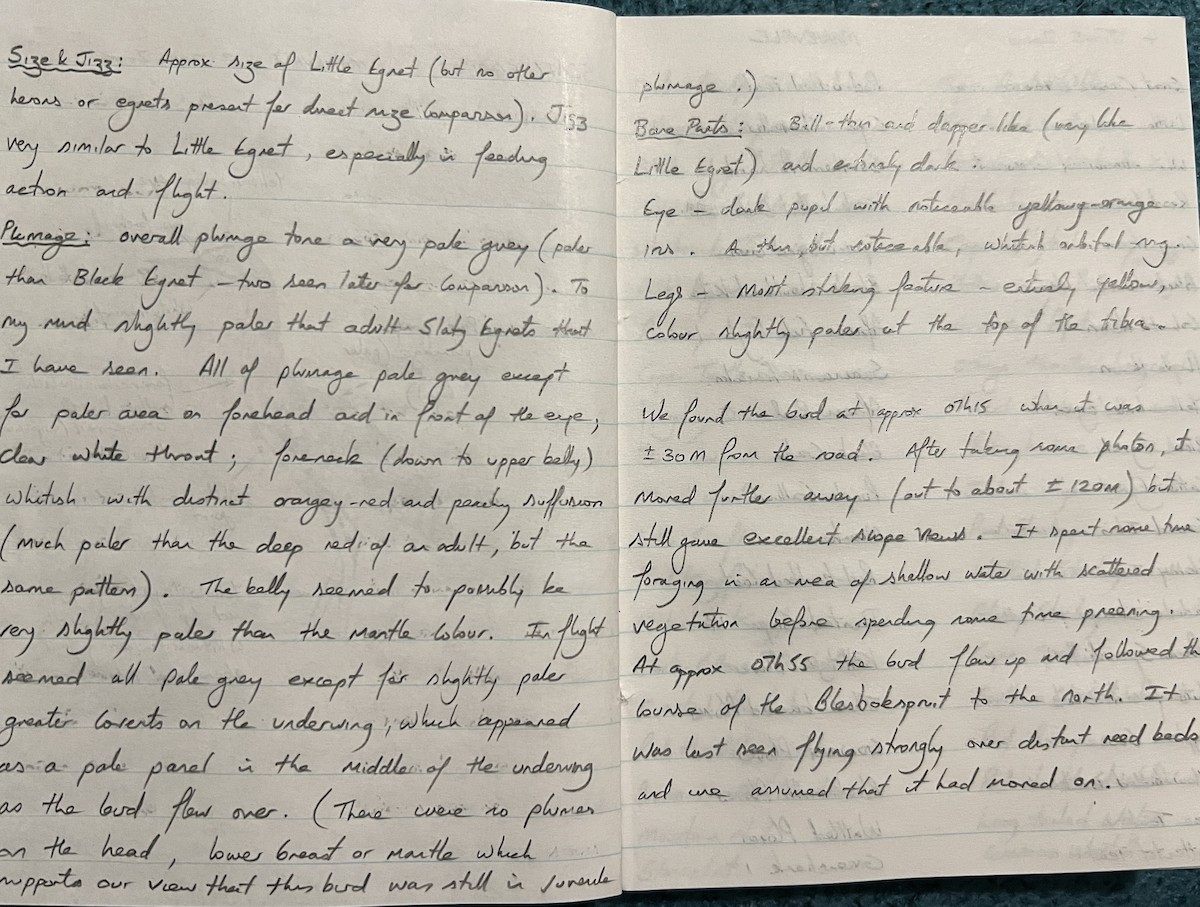 Size & Jizz: Approx size of Little Egret (but no other
herons or egrets present for direct size comparison). Jizz
very similar to Little Egret, especially in feeding
action and flight.
Plumage: overall plumage tone a very pale grey (paler
than Black Egret - two seen later for comparison). To
my mind slightly paler that adult Slaty Egrets that
I have seen. All of plumage pale grey except
for paler area on forehead and in front of the eye;
clear white throat; foreneck (down to upper belly)
whitish with distinct orangey-red and peachy suffusion
(much paler than the deep red of an adult, but the
same pattern). The belly seemed to possibly be
very slightly paler than the mantle colour. In flight
seemed all pale grey except for slightly paler
greater coverts on the underwing, which appeared
as a pale panel in the middle of the underwing
as the bird flew over. (There were no plumes
on the head, lower breast or mantle which
supports our view that this bird was still in juvenile
plumage.)
Bare Parts: Bill - thin and dagger like (very like
Little Egret) and entirely dark.
Eye - dark pupil with noticeable yellowy-orange
iris. A thin, but noticeable, whitish orbital ring.
Legs - Most striking feature - entirely yellow,
colour slightly paler at the top of the tibia.
We found the bird at approx 07h15 when it was
± 30m from the road. After taking some photos, it
moved further away (out to about ± 120m) but
still gave excellent scope views. It spent some time
foraging in an area of shallow water with scattered
vegetation before spending some time preening.
At approx 07h55 the bird flew up and followed th
course of the Blesbokspruit to the north. It
was last seen flying strongly over distant reed beds
and we assumed that it had moved on.